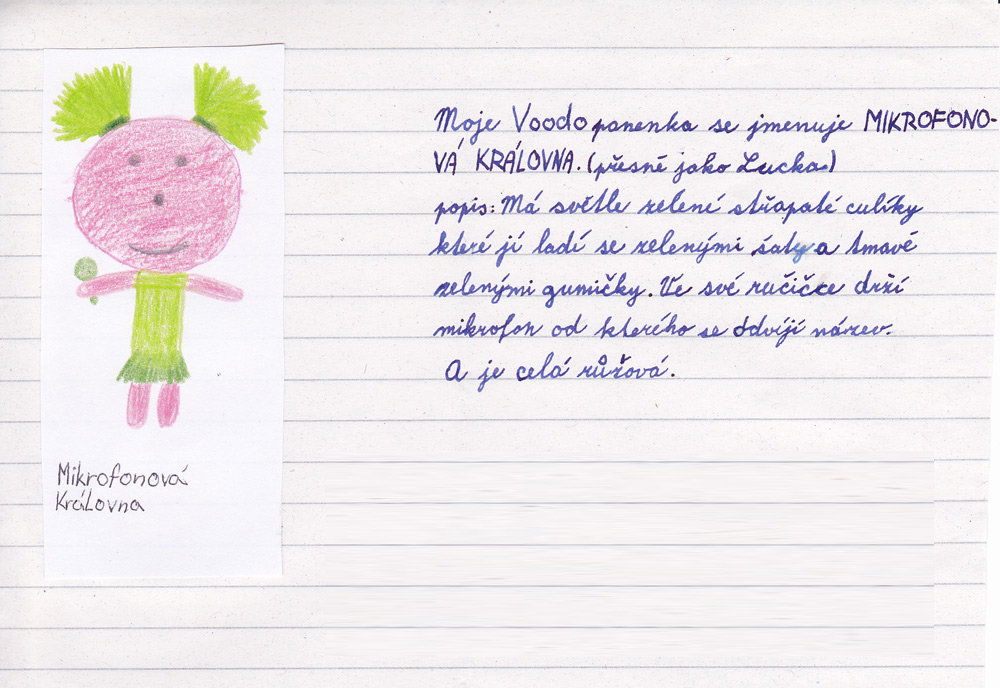 Moje Voodo panenka se jmenuje MIKROFONO-
VÁ KRÁLOVNA. (přesně jako Lucka)
popis: Má světle zelené střapaté culíky
které jí ladí se zelenými šaty a tmavě
zelenými gumičky. Ve své ručičce drží
mikrofon od kterého se odvíjí název.
A je celá růžová.
Mikrofonová
Královna